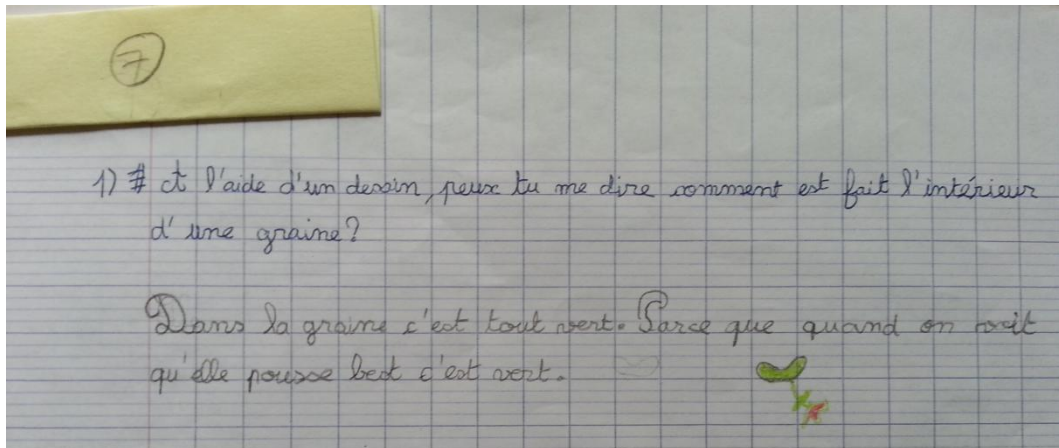 7
1) A l'aide d'un dessin, peux tu me dire comment est fait l'intérieur
d'une graine?
Dans la graine c'est tout vert. Parce que quand on voit
qu'elle pousse c'est vert.